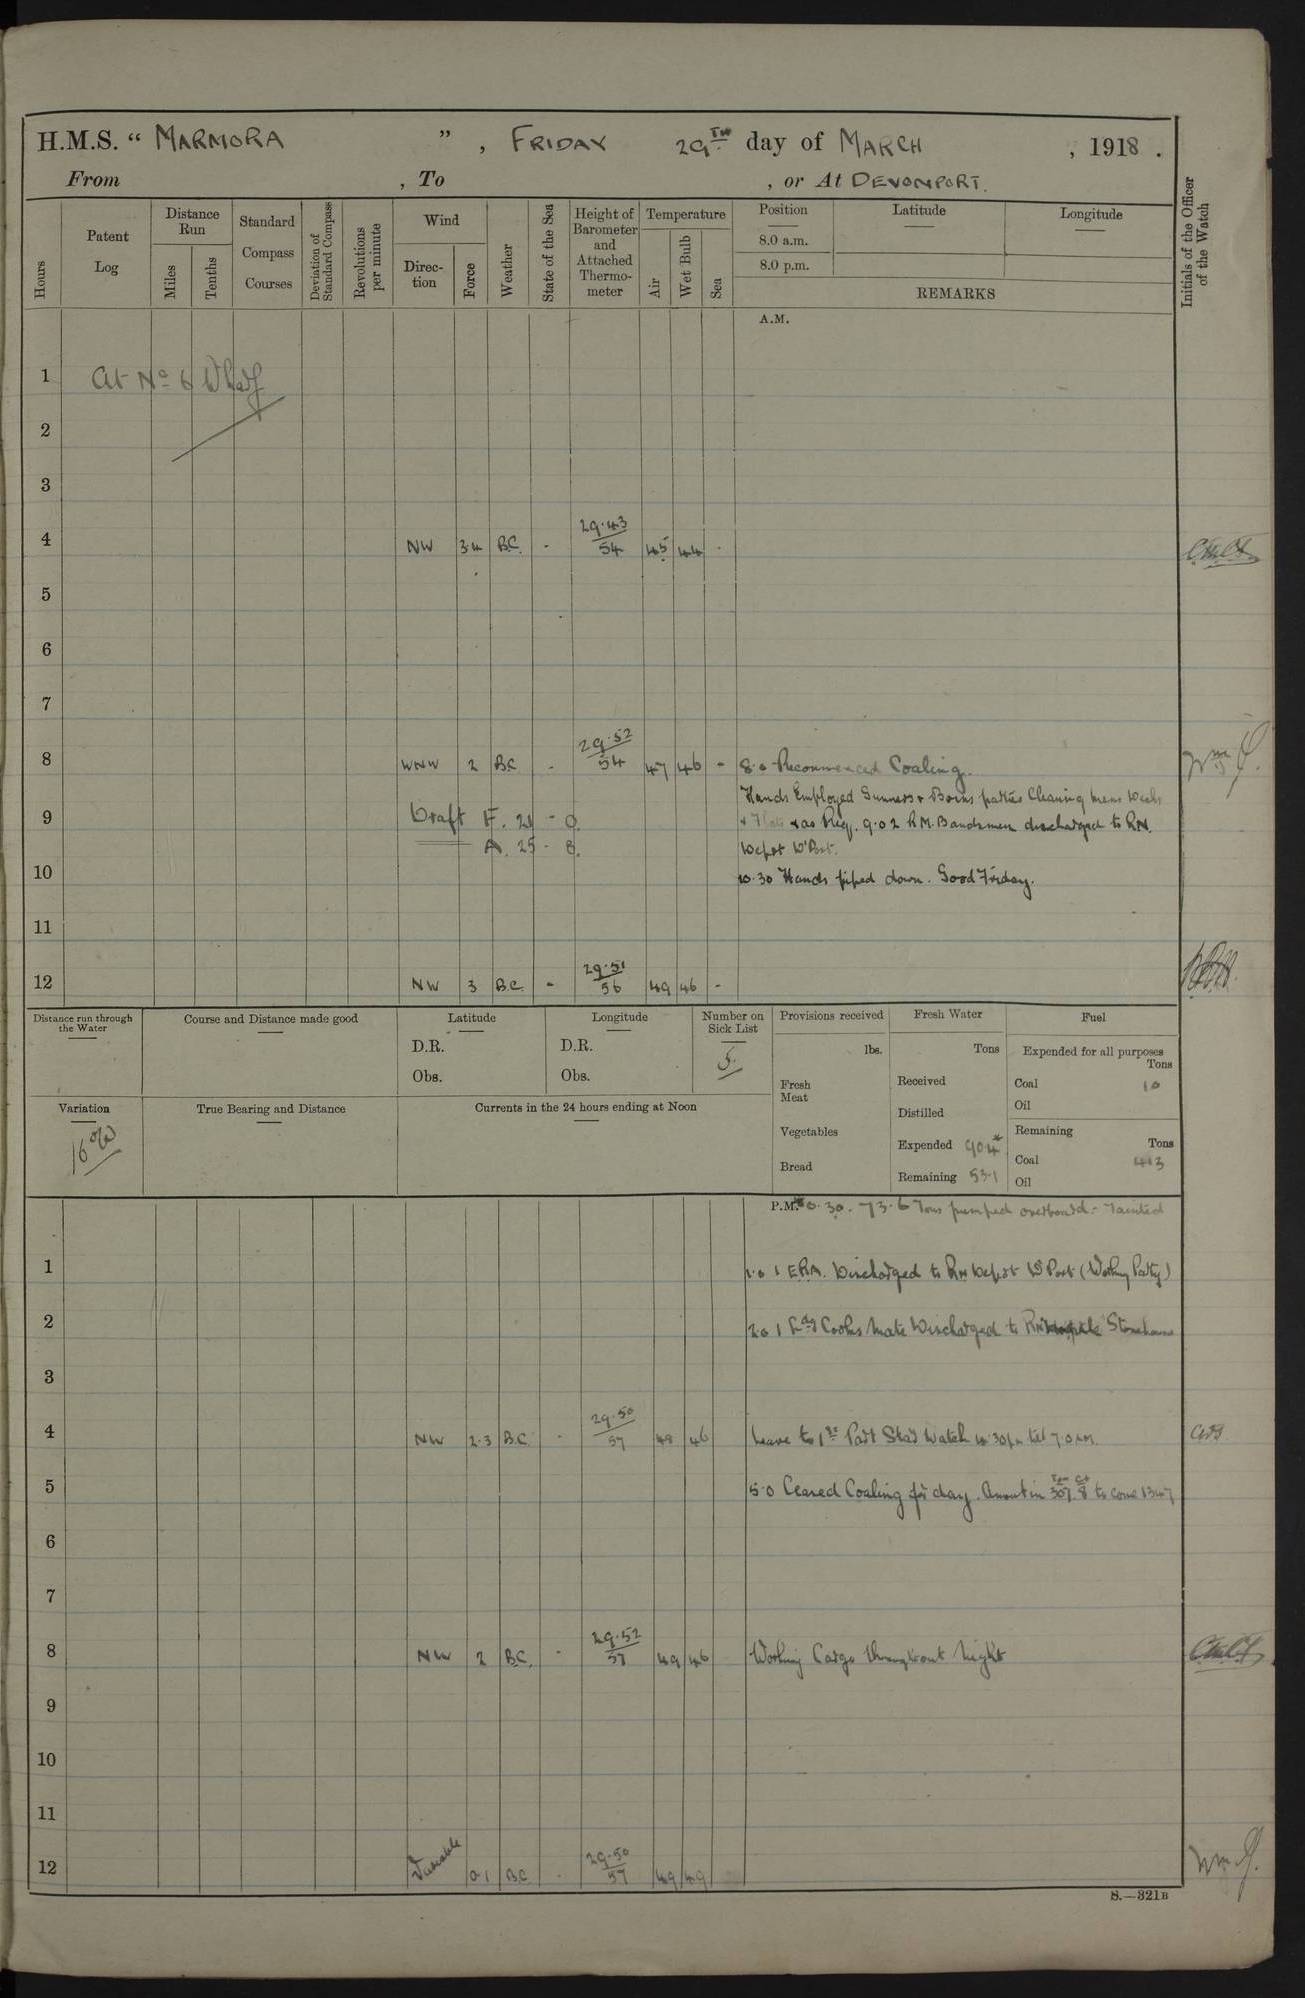 H.M.S. “ MARMORA ” , FRIDAY 29TH day of MARCH , 1918 .
From , To , or At DEVONPORT.
Hours
Patent Log
Distance Run
Miles
Tenths
Standard Compass Courses
Deviation of Standard Compass
Revolutions per minute
Wind
Direc-tion
Force
Weather
State of the Sea
Height of Barometer and Attached Thermo-meter
Temperature
Air
Wet Bulb
Sea
Position
8.0 a.m.
8.0 p.m.
Latitude
Longitude
REMARKS
Initials of the Officer of the Watch
A.M.
1 At No 6 Wharf
2
3
4 NW 3.4 BC. - 29.43/54 45 44 -
5
6
7
8 WNW 2 BC - 29.52/54 47 46 - 8.0 Recommenced Coaling.
Hands Employed Gunners & Bosns parties Cleaning mens
9 Draft F. 21 - 0. & as Req. 9.0 2 R.M. Bandsmen discharged to RN.
A. 25 - 8. Depot D'Port.
10 10.30 Hands piped down. Good Friday.
11
12 NW 3 BC. - 29.51/56 49 46 -
Distance run through the Water
Course and Distance made good
Latitude
D.R.
Obs.
Longitude
D.R.
Obs.
Number on Sick List
5.
Provisions received
lbs.
Fresh Meat
Vegetables
Bread
Fresh Water
Tons
Received
Distilled
Expended 90.4*
Remaining 531
Fuel
Expended for all purposes
Tons
Coal 10
Oil
Remaining
Tons
Coal 413
Oil
Variation
16°W
True Bearing and Distance
Currents in the 24 hours ending at Noon
P.M. * 0.30. 73.6 Tons pumped overboard - Tainted
1 1.0 1 E.R.A. Discharged to RN Depot D'Port (Working Party)
2 2.0 1 Ldg Cooks Mate Discharged to RN Stonehouse
3
4 NW 2.3 BC - 29.50/57 48 46 Leave to 1st Part Stbd Watch till 7.0 AM.
5 5.0 Ceased Coaling for day. Amount in 307 Ton 8 Ct to come 1347
6
7
8 NW 2 BC. - 29.52/57 49 46 Working Cargo throughout night
9
10
11
12 Variable 0.1 BC - 29.50/57 49 49
S.—321B